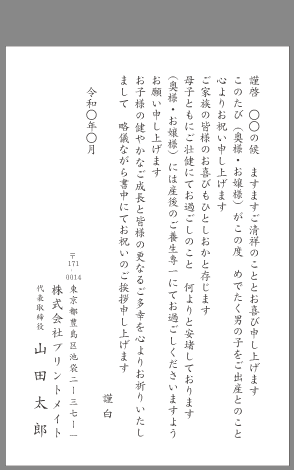 謹啓　〇〇の候　ますますご清祥のこととお喜び申し上げます
このたび（奥様・お嬢様）がこの度　めでたく男の子をご出産とのこと
心よりお祝い申し上げます
ご家族の皆様のお喜びもひとしおかと存じます
母子ともにご壮健にてお過ごしのこと　何よりと安堵しております
（奥様・お嬢様）には産後のご養生専一にてお過ごしくださいますよう
お願い申し上げます
お子様の健やかなご成長と皆様の更なるご多幸を心よりお祈りいたし
まして　略儀ながら書中にてお祝いのご挨拶申し上げます
謹白
令和〇年〇月
〒171-0014
東京都豊島区池袋二ー三七ー一
株式会社プリントメイト
代表取締役　山田太郎